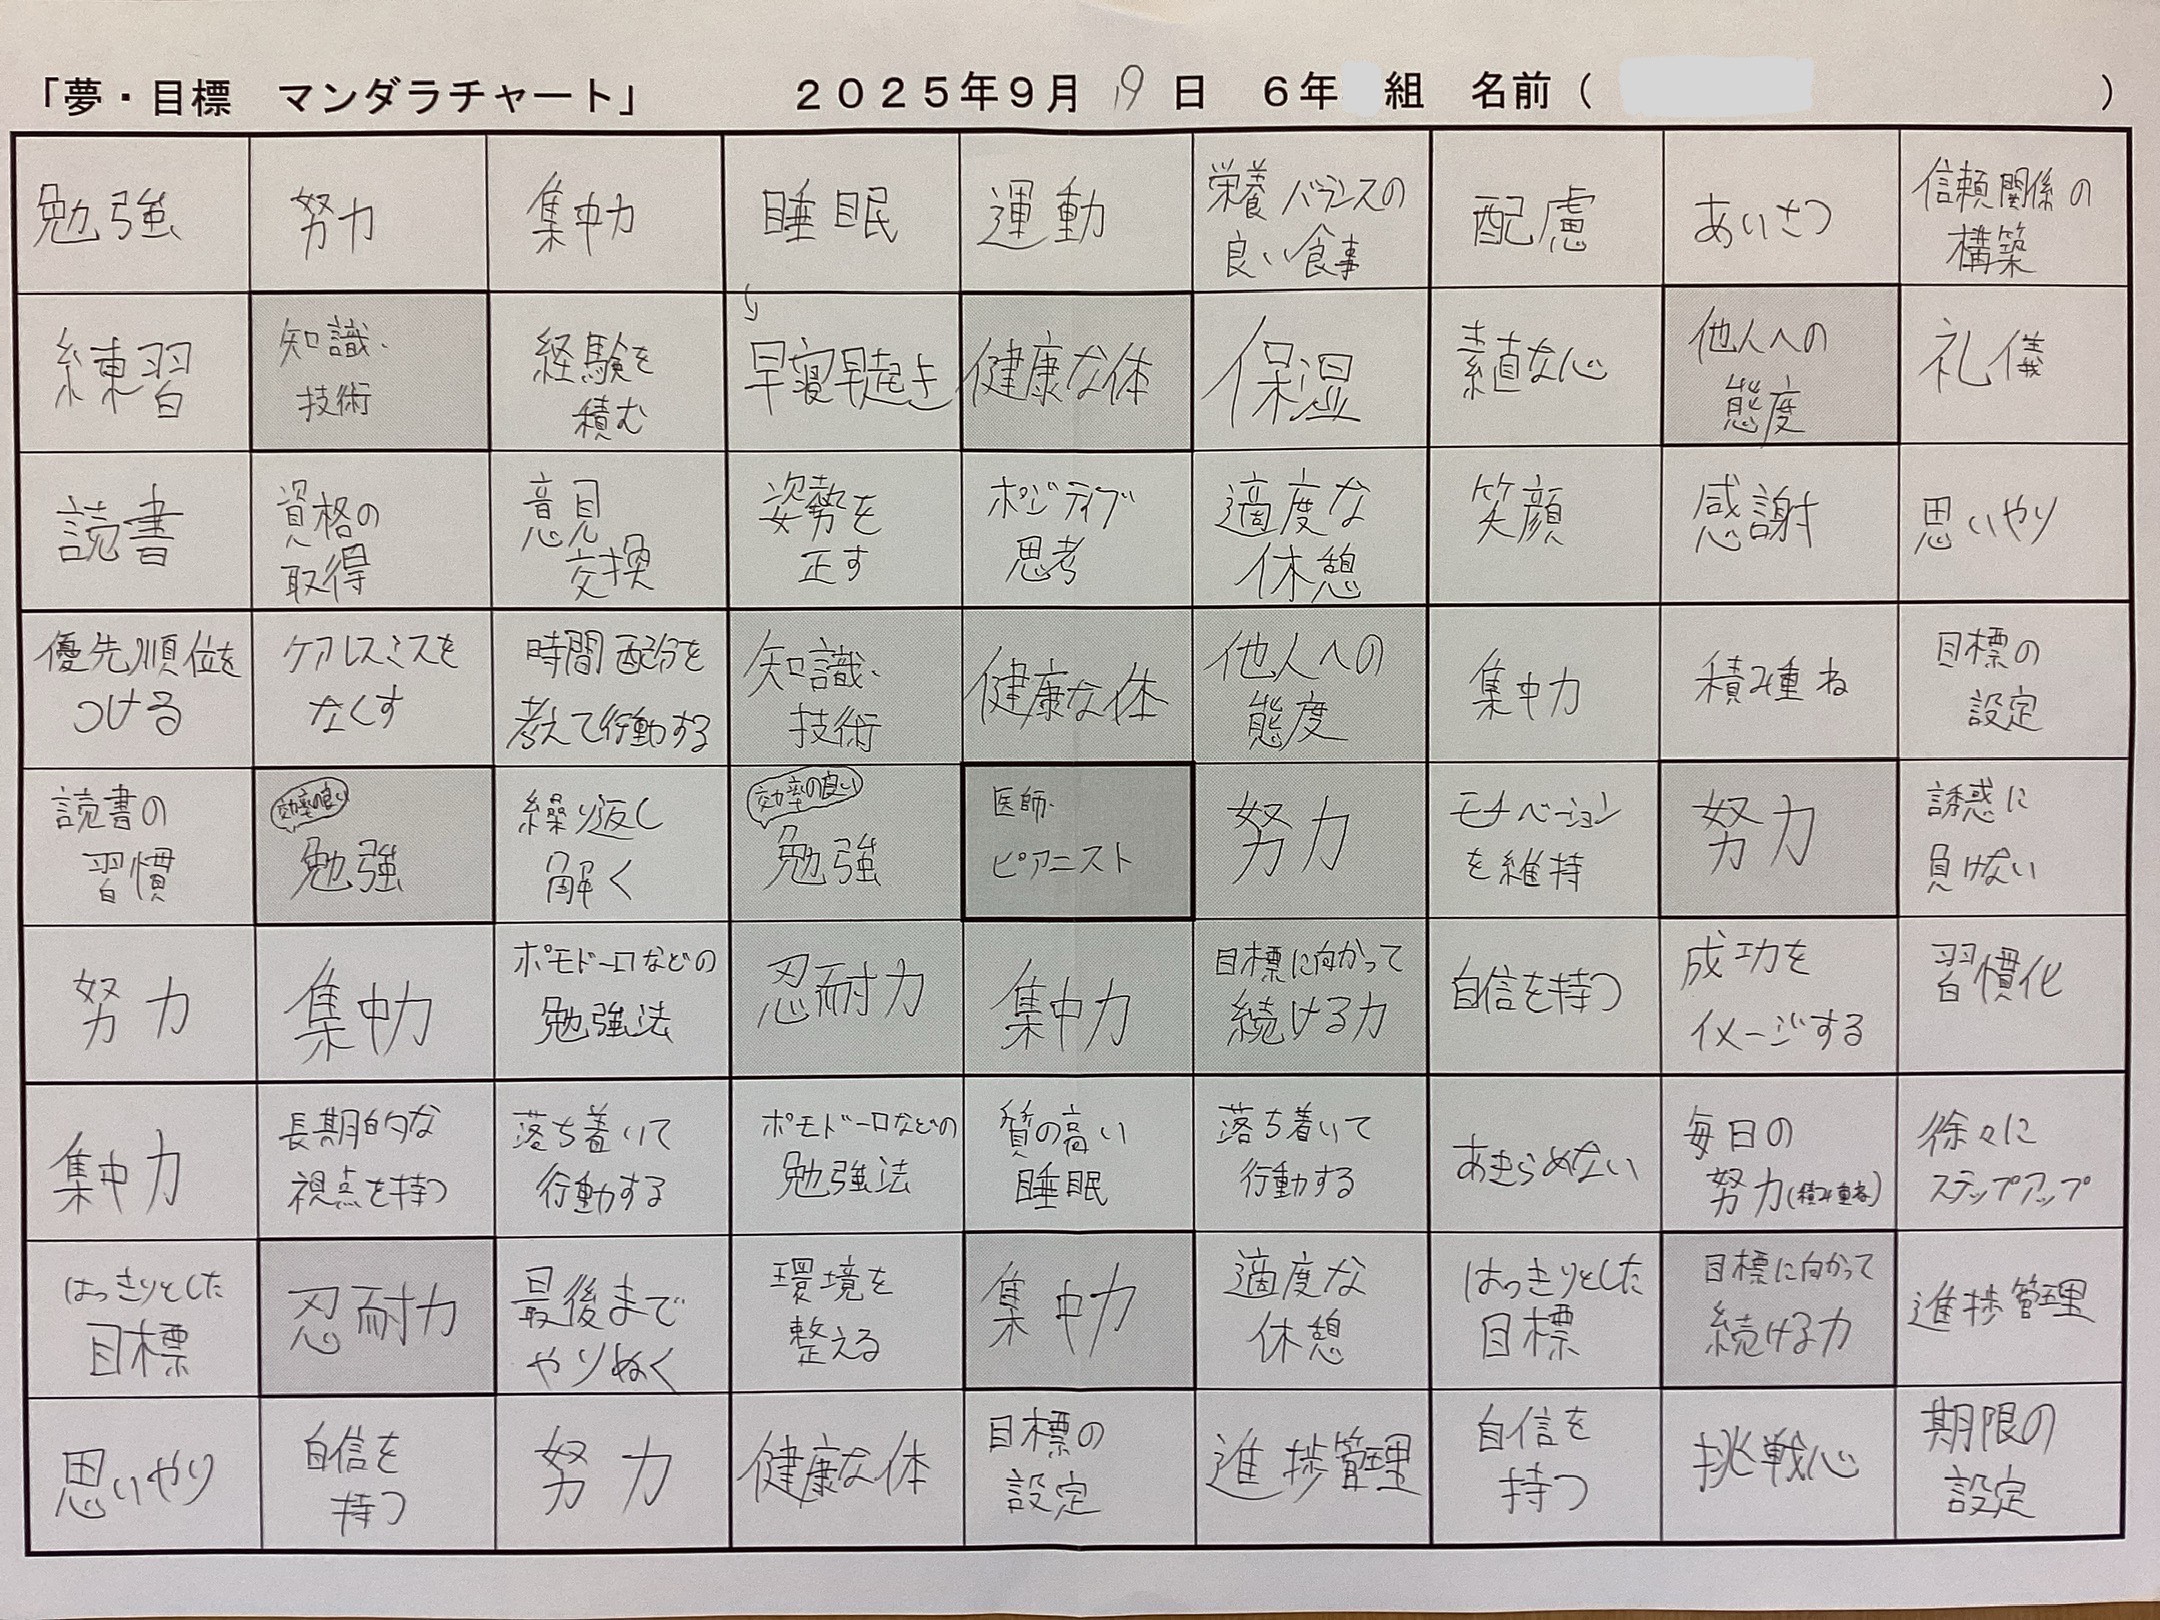 「夢・目標　マンダラチャート」　２０２５年９月 19 日　６年　組　名前（　）
勉強 努力 集中力 睡眠 運動 栄養バランスの良い食事 配慮 あいさつ 信頼関係の構築
練習 知識・技術 経験を積む 早寝早起き 健康な体 保湿 素直な心 他人への態度 礼儀
読書 資格の取得 意見交換 姿勢を正す ポジティブ思考 適度な休憩 笑顔 感謝 思いやり
優先順位をつける ケアレスミスをなくす 時間配分を考えて行動する 知識・技術 健康な体 他人への態度 集中力 積み重ね 目標の設定
読書の習慣 効率の良い勉強 繰り返し解く 効率の良い勉強 医師・ピアニスト 努力 モチベーションを維持 努力 誘惑に負けない
努力 集中力 ポモドーロなどの勉強法 忍耐力 集中力 目標に向かって続ける力 自信を持つ 成功をイメージする 習慣化
集中力 長期的な視点を持つ 落ち着いて行動する ポモドーロなどの勉強法 質の高い睡眠 落ち着いて行動する あきらめない 毎日の努力(積み重ね) 徐々にステップアップ
はっきりとした目標 忍耐力 最後までやりぬく 環境を整える 集中力 適度な休憩 はっきりとした目標 目標に向かって続ける力 進捗管理
思いやり 自信を持つ 努力 健康な体 目標の設定 進捗管理 自信を持つ 挑戦心 期限の設定